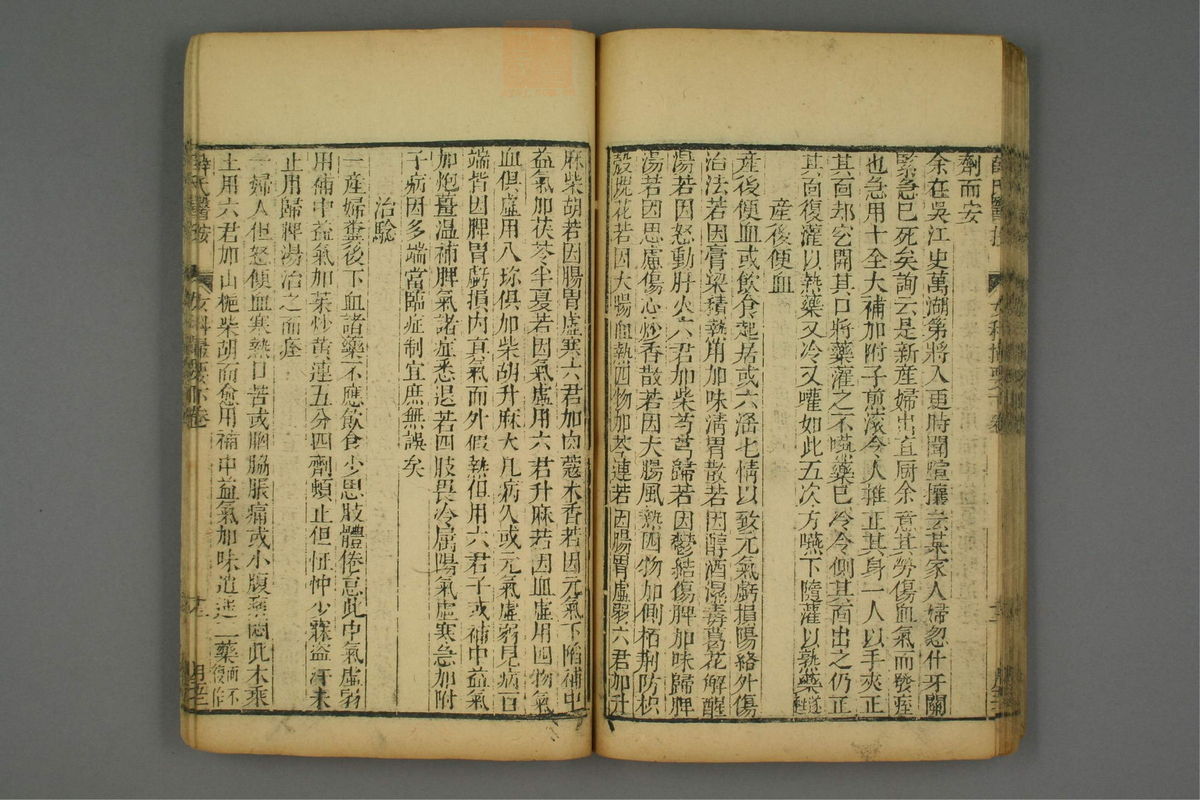 劑而安
余在吳江史萬湖第將入更時聞喧攘云某家人婦忽仆牙關
緊急已死矣詢云是新産婦出直厨余意其勞傷血氣而發痙
也急用十全大補加附子煎滚令人推正其身一人以手夾正
其面却空開其口將藥灌之不嚥藥已冷令側其面出之仍正
其面復灌以熱藥又冷又灌如此五次方嚥下隨灌以熱藥遂甦
産後便血
産後便血或飲食起居或六淫七情以致元氣虧損陽絡外傷
治法若因膏粱積熱用加味清胃散若因醇酒濕毒葛花解酲
湯若因怒動肝火六君加柴芍芎歸若因鬱結傷脾加味歸脾
湯若因思慮傷心妙香散若因大腸風熱四物加側栢荆防枳
殼槐花若因大腸血熱四物加芩連若因腸胃虛弱六君加升
麻柴胡若因腸胃虛寒六君加肉蔻木香若因元氣下陷補中
益氣加茯苓半夏若因氣虛用六君升麻若因血虛用四物氣
血俱虛用八珍俱加柴胡升麻大凡病久或元氣虛弱見病百
端皆因脾胃虧損内真氣而外假熱但用六君子或補中益氣
加炮薑温補脾氣諸症悉退若四肢畏冷屬陽氣虛寒急加附
子病因多端當臨症制宜庶無誤矣
治驗
一産婦糞後下血諸藥不應飲食少思肢體倦怠此中氣虛弱
用補中益氣加茱炒黄連五分四劑頓止但怔忡少寐盗汗未
止用歸脾湯治之而痊
一婦人但怒便血寒熱口苦或胸脇脹痛或小腹痞悶此木乘
土用六君加山梔柴胡而愈用補中益氣加味逍遥二藥而不復作
薛氏醫按
女科撮要下卷